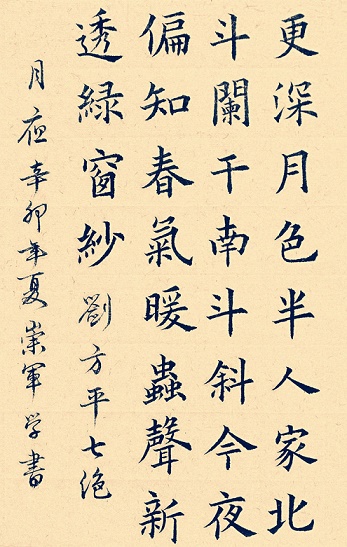 更深月色半人家北
斗闌干南斗斜今夜
偏知春氣暖蟲聲新
透綠窗紗劉方平七絕
月夜辛卯年夏崇軍学書